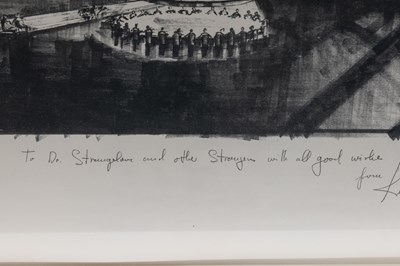 To Dr. Strangelove and other Strangers with all good wishes
from K